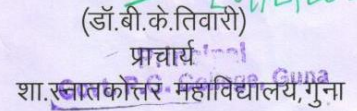 (डॉ.बी.के.तिवारी)
प्राचार्य
शा.स्नातकोत्तर महाविद्यालय,गुना
Govt. P.G. College, Guna